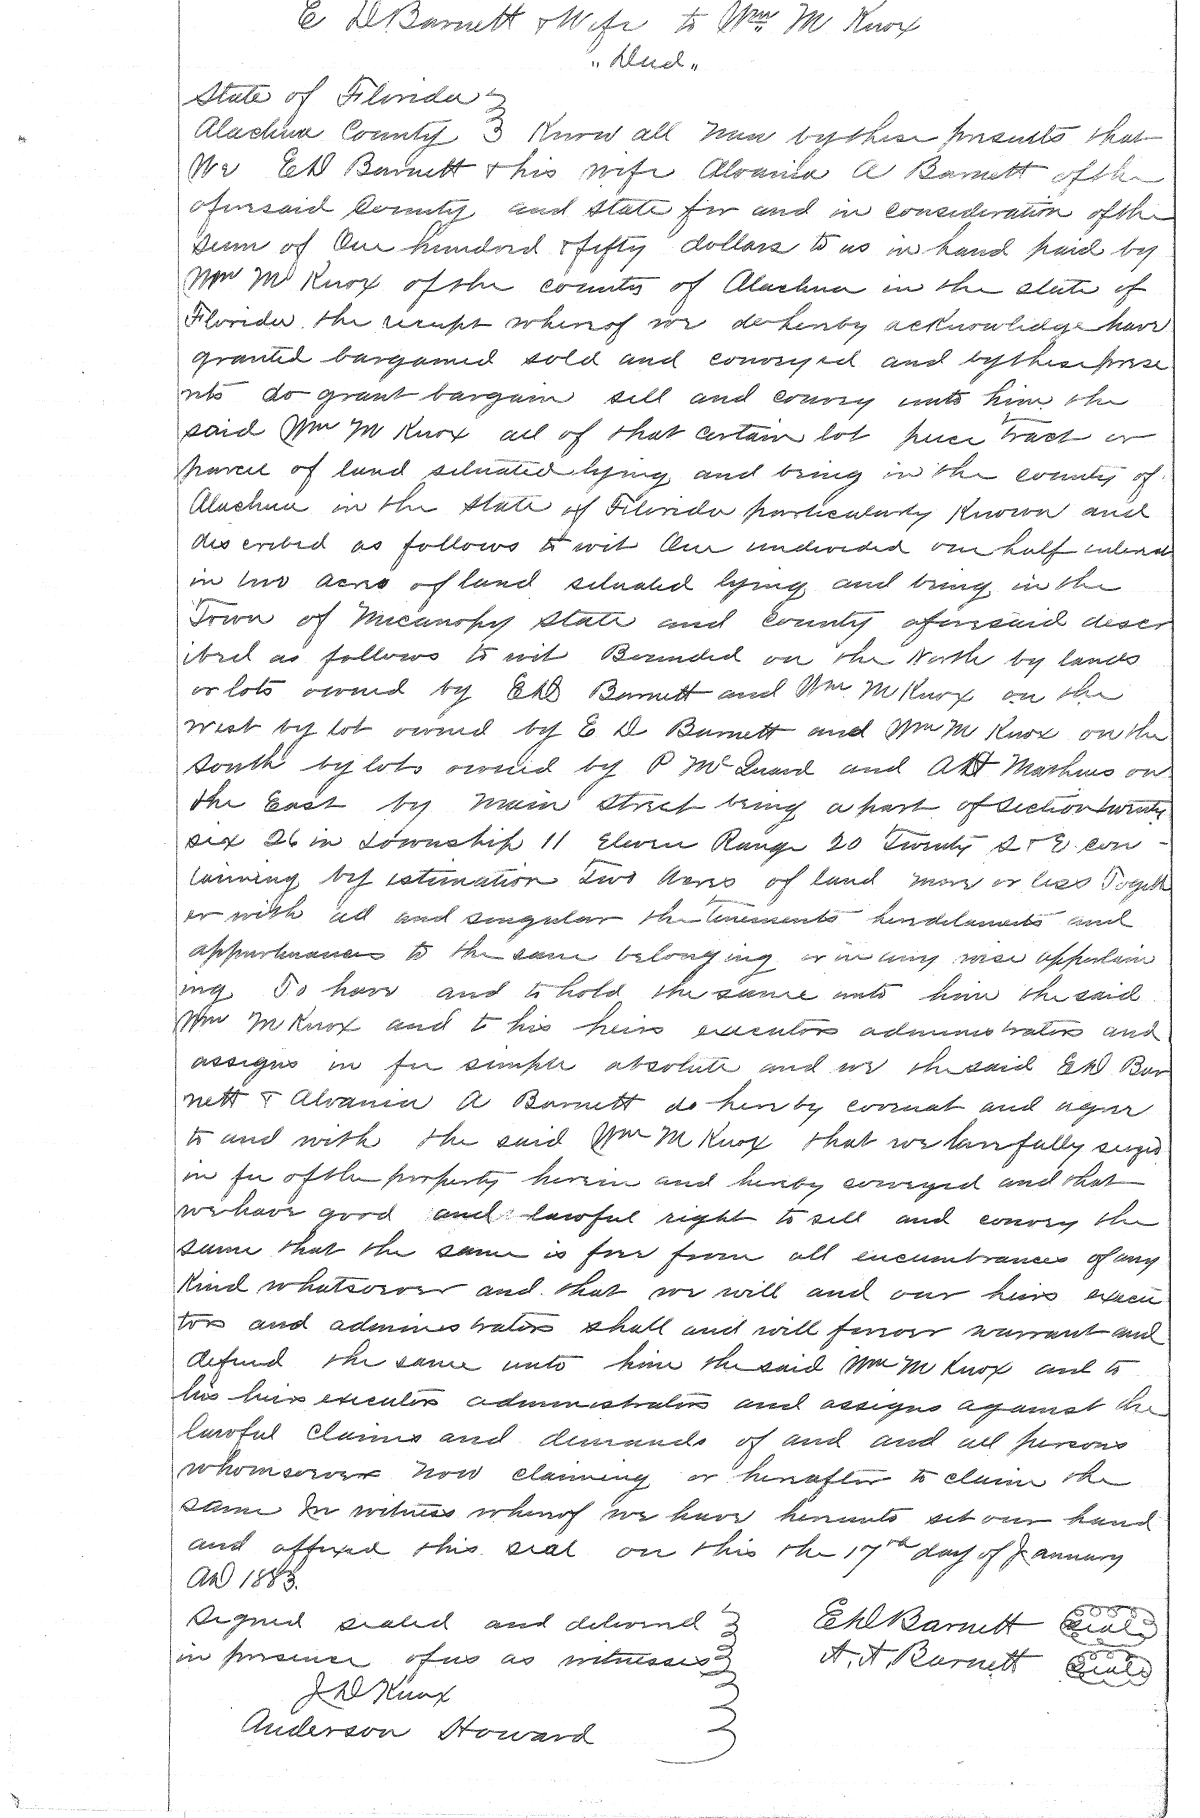 E D Barnett & Wife to Wm M Knox
"Deed"
State of Florida
Alachua County Know all men by these presents that
We E D Barnett & his wife Alvania A Barnett of the
aforesaid County and State for and in consideration of the
sum of One hundred & fifty dollars to us in hand paid by
Wm M Knox of the county of Alachua in the state of
Florida the receipt whereof we do hereby acknowledge have
granted bargained sold and conveyed and by these prese
nts do grant bargain sell and convey unto him the
said Wm M Knox all of that certain lot piece tract or
parcel of land situated lying and being in the county of
Alachua in the State of Florida particularly Known and
described as follows to wit One undivided one half interest
in two acres of land situated lying and being in the
Town of Micanopy State and County aforesaid descr
ibed as follows to wit Bounded on the North by lands
or lots owned by E D Barnett and Wm M Knox on the
West by lot owned by E D Barnett and Wm M Knox on the
South by lots owned by P McQuard and A H Mathews on
the East by Main Street being a part of Section twenty
six 26 in Township 11 Eleven Range 20 Twenty S & E con-
taining by estimation Two Acres of land more or less Togeth
er with all and singular the tenements herediaments and
appurtenances to the same belonging or in any wise appertain
ing To have and to hold the same unto him the said
Wm M Knox and to his heirs executors administrators and
assigns in fee simple absolute and we the said E D Bar
nett & Alvania A Barnett do hereby covenat and agree
to and with the said Wm M Knox that we lawfully seized
in fee of the property herein and hereby conveyed and that
we have good and lawful right to sell and convey the
same that the same is free from all encumbrances of any
Kind whatsoever and that we will and our heirs execu
tors and administrators shall and will forever warrant and
defend the same unto him the said Wm M Knox and to
his heirs executors administrators and assigns against the
lawful claims and demands of and and all persons
whomsoever now claiming or hereafter to claim the
same In witness whereof we have hereunto set our hand
and affixed this seal on this the 17th day of January
AD 1883.
Signed sealed and delivered E D Barnett Seal
in presence of us as witnesses A. A. Barnett Seal
J D Knox
Anderson Howard